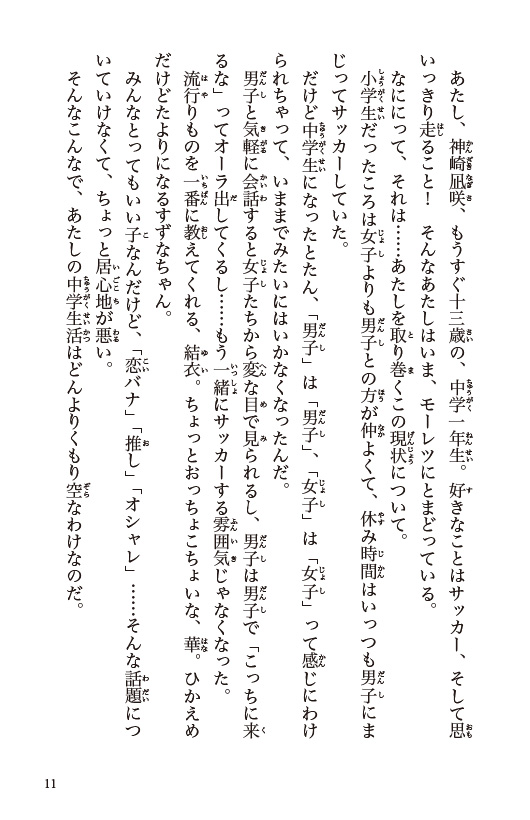 あたし、神崎凪咲、もうすぐ十三歳の、中学一年生。好きなことはサッカー、そして思
いっきり走ること！　そんなあたしはいま、モーレツにとまどっている。
なにについて、それは……あたしを取り巻くこの現状について。
小学生だったころは女子よりも男子との方が仲よくて、休み時間はいっつも男子にま
じってサッカーしていた。
だけど中学生になったとたん、「男子」は「男子」、「女子」は「女子」って感じにわけ
られちゃって、いままでみたいにはいかなくなったんだ。
男子と気軽に会話すると女子たちから変な目で見られるし、男子は男子で「こっちに来
るな」ってオーラ出してくるし……もう一緒にサッカーする雰囲気じゃなくなった。
流行りものを一番に教えてくれる、結衣。ちょっとおっちょこちょいな、華。ひかえめ
だけどたよりになるすずなちゃん。
みんなとってもいい子なんだけど、「恋バナ」「推し」「オシャレ」……そんな話題につ
いていけなくて、ちょっと居心地が悪い。
そんなこんなで、あたしの中学生活はどんよりくもり空なわけなのだ。
11